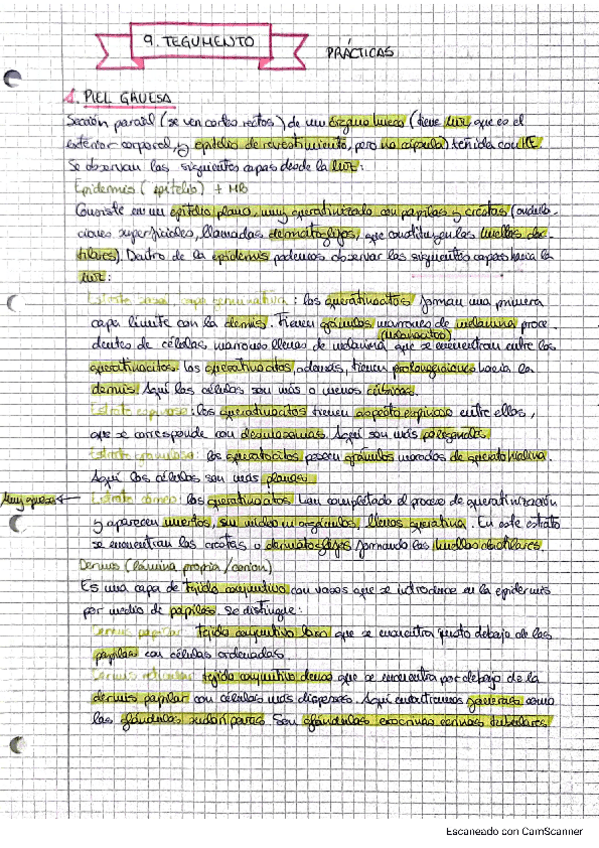 9. TEGUMENTO
PRÁCTICAS
1. PIEL GRUESA
Sección parcial (se ven cortes rectos) de un órgano hueco (tiene luz, que es el
exterior corporal, y epitelio de revestimiento, pero no cápsula) teñida con HE
Se observan las siguientes capas desde la luz:
Epidermis (epitelio) + MB
Consiste en un epitelio plano, muy queratinizado con papilas y crestas (ondula-
ciones superficiales, llamadas dermatoglifos, que constituyen las huellas dac-
tilares). Dentro de la epidermis podemos observar las siguientes capas hacia la
luz:
Estrato basal, capa germinativa: los queratinocitos forman una primera
capa límite con la dermis. Tienen gránulos marrones de melanina proce-
(melanocitos)
dentes de células marrones llenas de melanina que se encuentran entre los
queratinocitos. Los queratinocitos, además, tienen prolongaciones hacia la
dermis. Aquí las células son más o menos cúbicas.
Estrato espinoso: los queratinocitos tienen aspecto espinoso entre ellos,
que se corresponde con desmosomas. Aquí son más poligonales.
Estrato granuloso: los queratocitos poseen gránulos morados de queratohialina.
Aquí las células son más planas.
Muy grueso ← Estrato córneo: los queratinocitos han completado el proceso de queratinización
y aparecen muertos, sin núcleo ni orgánulos, llenos queratina. En este estrato
se encuentran las crestas o dermatoglifos formando las huellas dactilares.
Dermis (lámina propia / corion)
Es una capa de tejido conjuntivo con vasos que se introduce en la epidermis
por medio de papilas. Se distingue:
Dermis papilar: tejido conjuntivo laxo que se encuentra justo debajo de las
papilas con células ordenadas.
Dermis reticular: tejido conjuntivo denso que se encuentra por debajo de la
dermis papilar con células más dispersas. Aquí encontramos como
las glándulas sudoríparas. Son glándulas exocrinas ecrinas tubulares
Escaneado con CamScanner